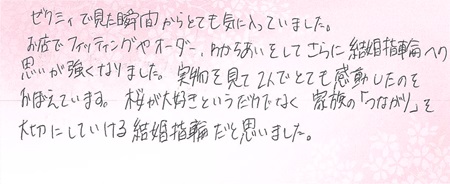 ゼクシィで見た瞬間からとても気に入っていました。
お店でフィッティングやオーダー、わかちあいをしてさらに結婚指輪への
思いが強くなりました。実物を見て2人でとても感動したのを
おぼえています。桜が大好きというだけでなく 家族の「つながり」を
大切にしていける結婚指輪だと思いました。